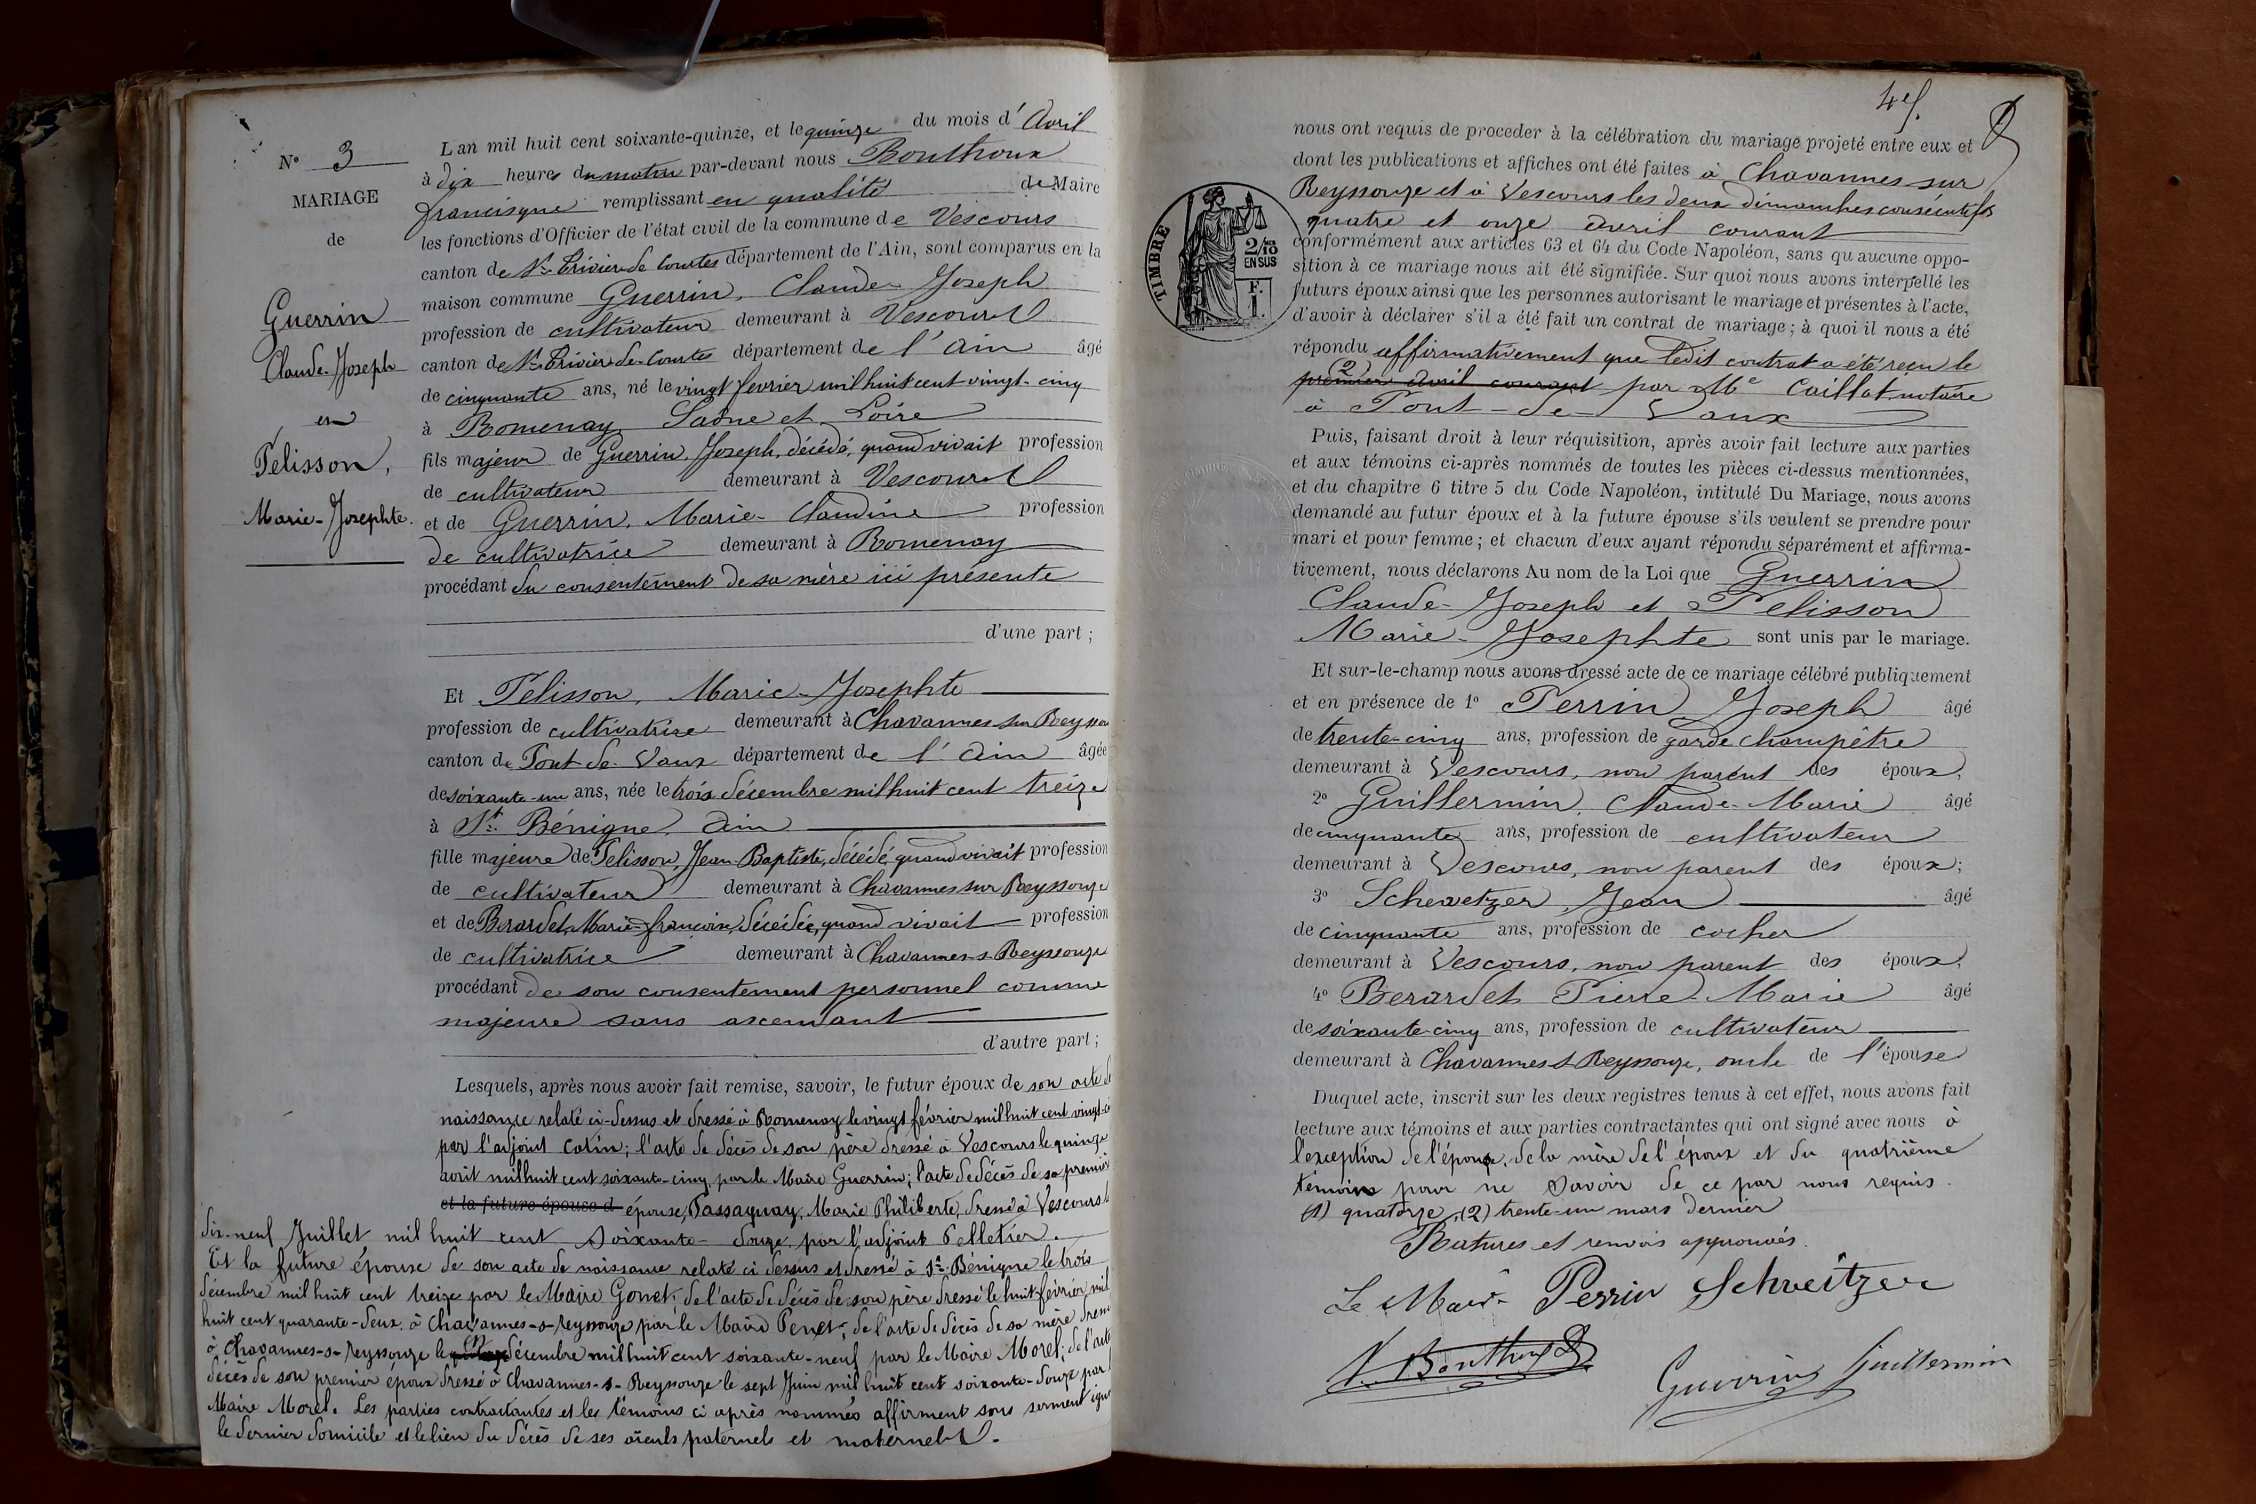 N° 3
MARIAGE
de
Guerrin
Claude-Joseph
et
Pelisson,
Marie-Josephte.
L'an mil huit cent soixante-quinze, et le quinze du mois d'Avril
à dix heures du matin par-devant nous Bouthoux
francisque remplissant en qualité de Maire
les fonctions d'Officier de l'état civil de la commune de Vescours
canton de St Trivier de Courtes département de l'Ain, sont comparus en la
maison commune Guerrin, Claude-Joseph
profession de cultivateur demeurant à Vescours
canton de St Trivier-de-Courtes département de l'Ain âgé
de cinquante ans, né le vingt février mil huit cent vingt-cinq
à Romenay, Saône et Loire
fils majeur de Guerrin, Joseph, décédé, quand vivait profession
de cultivateur demeurant à Vescours
et de Guerrin, Marie-Claudine profession
de cultivatrice demeurant à Romenay
procédant du consentement de sa mère ici présente
d'une part ;
Et Pelisson, Marie-Josephte
profession de cultivatrice demeurant à Chavannes sur Reysso
canton de Pont-de-Vaux département de l'Ain âgée
de soixante-un ans, née le trois décembre mil huit cent treize
à St Bénigne, Ain
fille majeure de Pelisson, Jean-Baptiste, décédé, quand vivait profession
de cultivateur demeurant à Chavannes sur Reyssouze
et de Berardet, Marie-françoise, décédée, quand vivait profession
de cultivatrice demeurant à Chavannes-s-Reyssouze
procédant de son consentement personnel comme
majeure sans ascendant
d'autre part ;
Lesquels, après nous avoir fait remise, savoir, le futur époux de son acte de
naissance relaté ci-dessus et dressé à Romenay le vingt février mil huit cent vingt-ci
par l'adjoint Colin ; l'acte de décès de son père dressé à Vescours le quinze
août mil huit cent soixante-cinq par le Maire Guerrin ; l'acte de décès de sa première
et la future épouse d épouse, Passaquay, Marie Philiberte, dressé à Vescours l
dix-neuf Juillet mil huit cent soixante-douze, par l'adjoint Pelletier.
Et la future épouse de son acte de naissance relaté ci dessus et dressé à St Bénigne le trois
décembre mil huit cent treize par le Maire Gonet ; de l'acte de décès de son père dressé le huit février mil
huit cent quarante-deux à Chavannes-s-reyssouze par le Maire Penet ; de l'acte de décès de sa mère dressé
à Chavannes-s-reyssouze le (1) décembre mil huit cent soixante-neuf par le Maire Morel ; de l'acte
décès de son premier époux dressé à Chavannes-s-Reyssouze le sept Juin mil huit cent soixante-douze par l
Maire Morel. Les parties contractantes et les témoins ci après nommés affirment sous serment ignor
le dernier domicile et le lieu du décès de ses aïeuls paternels et maternels.
45.
nous ont requis de procéder à la célébration du mariage projeté entre eux et
dont les publications et affiches ont été faites à Chavannes sur
Reyssouze et à Vescours les deux dimanches consécutifs
quatre et onze avril courant
conformément aux articles 63 et 64 du Code Napoléon, sans qu'aucune oppo-
sition à ce mariage nous ait été signifiée. Sur quoi nous avons interpellé les
futurs époux ainsi que les personnes autorisant le mariage et présentes à l'acte,
d'avoir à déclarer s'il a été fait un contrat de mariage ; à quoi il nous a été
répondu affirmativement que ledit contrat a été reçu le
premier avril courant (2) par Me Caillat, notaire
à Pont-de-Vaux
TIMBRE
2/10
EN SUS
F.
1.
Puis, faisant droit à leur réquisition, après avoir fait lecture aux parties
et aux témoins ci-après nommés de toutes les pièces ci-dessus mentionnées,
et du chapitre 6 titre 5 du Code Napoléon, intitulé Du Mariage, nous avons
demandé au futur époux et à la future épouse s'ils veulent se prendre pour
mari et pour femme ; et chacun d'eux ayant répondu séparément et affirma-
tivement, nous déclarons Au nom de la Loi que Guerrin
Claude-Joseph et Pelisson
Marie-Josephte sont unis par le mariage.
Et sur-le-champ nous avons dressé acte de ce mariage célébré publiquement
et en présence de 1° Perrin Joseph âgé
de trente-cinq ans, profession de garde champêtre
demeurant à Vescours, non parent des époux,
2° Guillermin, Claude-Marie âgé
de cinquante ans, profession de cultivateur
demeurant à Vescours, non parent des époux ;
3° Schevetzer, Jean âgé
de cinquante ans, profession de cocher
demeurant à Vescours, non parent des époux,
4° Berardet Pierre-Marie âgé
de soixante-cinq ans, profession de cultivateur
demeurant à Chavannes s Reyssouze, oncle de l'épouse
Duquel acte, inscrit sur les deux registres tenus à cet effet, nous avons fait
lecture aux témoins et aux parties contractantes qui ont signé avec nous à
l'exception de l'épouse, de la mère de l'époux et du quatrième
témoin pour ne savoir de ce par nous requis.
(1) quatorze, (2) trente-un mars dernier
Ratures et renvois approuvés.
Le Maire Perrin Schveitzer
F. Bouthoux
Guerrin Guillermin